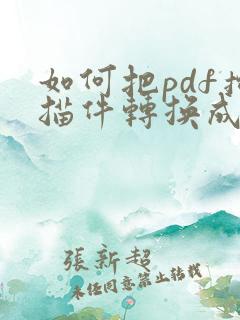 如何把pdf掃
描件轉換成
張新超
未经同意禁止转载